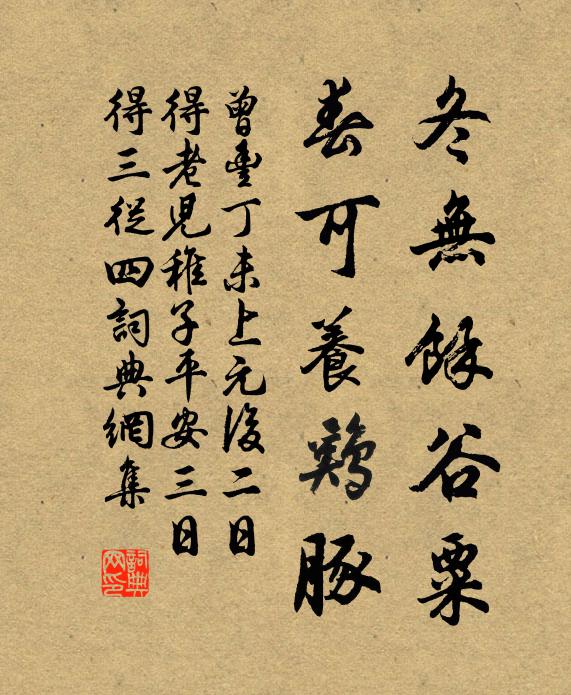 冬無餘谷粟
春可養鷄豚
曾豐丁未上元後二日
得老兒稚子平安三日
得三從四詞典網集
詞典网印